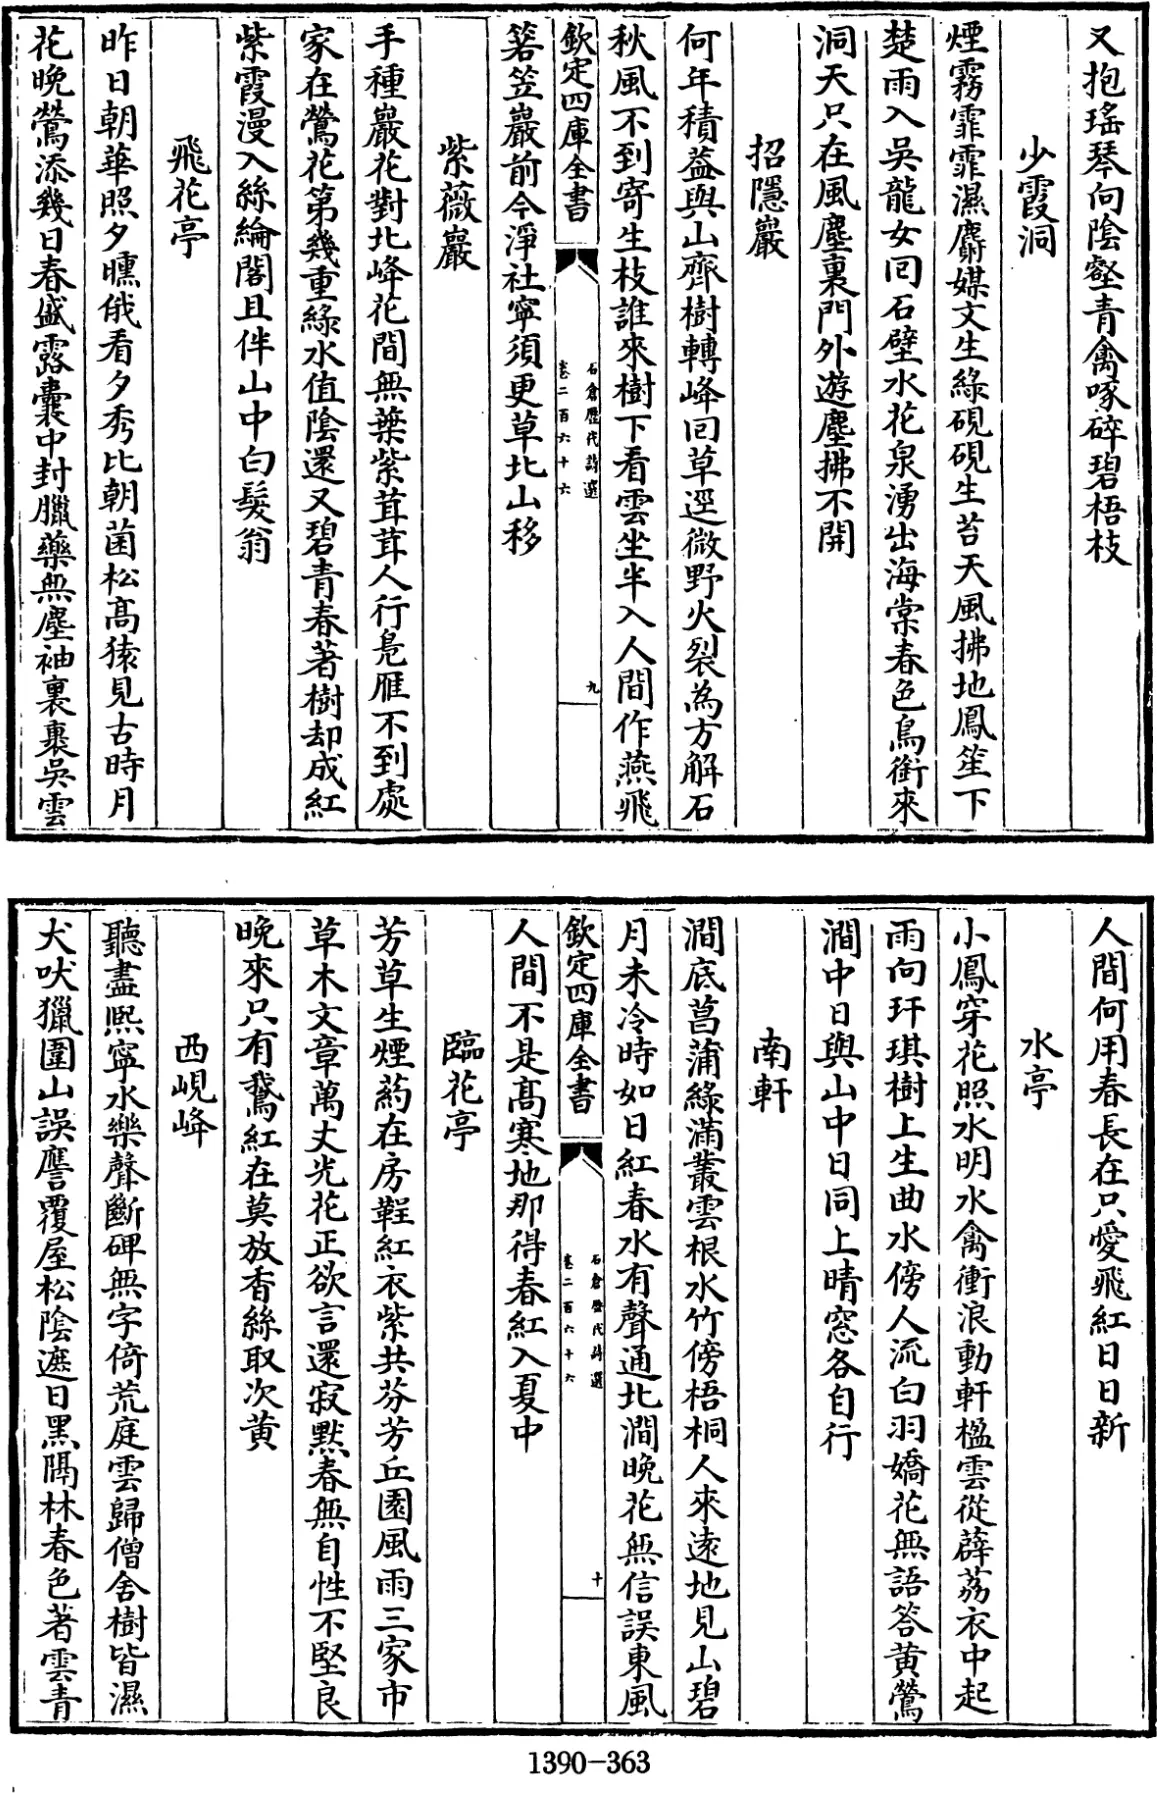 又抱瑤琴向陰壑青禽啄碎碧梧枝
少霞洞
煙霧霏霏濕麝媒文生綠硯硯生苔天風拂地鳳笙下
楚雨入吳龍女回石壁水花泉湧出海棠春色鳥銜來
洞天只在風塵裏門外遊塵拂不開
招隱巖
何年積葢與山齊樹轉峰回草逕微野火裂為方解石
秋風不到寄生枝誰來樹下看雲坐半入人間作燕飛
欽定四庫全書
石倉歷代詩選
卷二百六十六
九
箬笠巖前今淨社寧須更草北山移
紫薇巖
手種巖花對北峰花間無葉紫茸茸人行鳬雁不到處
家在鶯花第幾重綠水值陰還又碧青春著樹却成紅
紫霞漫入絲綸閣且伴山中白髮翁
飛花亭
昨日朝華照夕曛俄看夕秀比朝菌松高猿見古時月
花晚鶯添幾日春盛露囊中封臘藥無塵袖裏裹吳雲
人間何用春長在只愛飛紅日日新
水亭
小鳳穿花照水明水禽衝浪動軒楹雲從薜荔衣中起
雨向玕琪樹上生曲水傍人流白羽嬌花無語答黃鶯
澗中日與山中日同上晴窓各自行
南軒
澗底菖蒲綠滿叢雲根水竹傍梧桐人來遠地見山碧
月未冷時如日紅春水有聲通北澗晚花無信誤東風
欽定四庫全書
石倉歷代詩選
卷二百六十六
十
人間不是高寒地那得春紅入夏中
臨花亭
芳草生煙葯在房鞓紅衣紫共芬芳丘園風雨三家市
草木文章萬丈光花正欲言還寂默春無自性不堅良
晚來只有鵞紅在莫放香絲取次黃
西峴峰
聽盡熈寧水樂聲斷碑無字倚荒庭雲歸僧舍樹皆濕
犬吠獵圍山誤譍覆屋松陰遮日黑隔林春色著雲青
1390-363